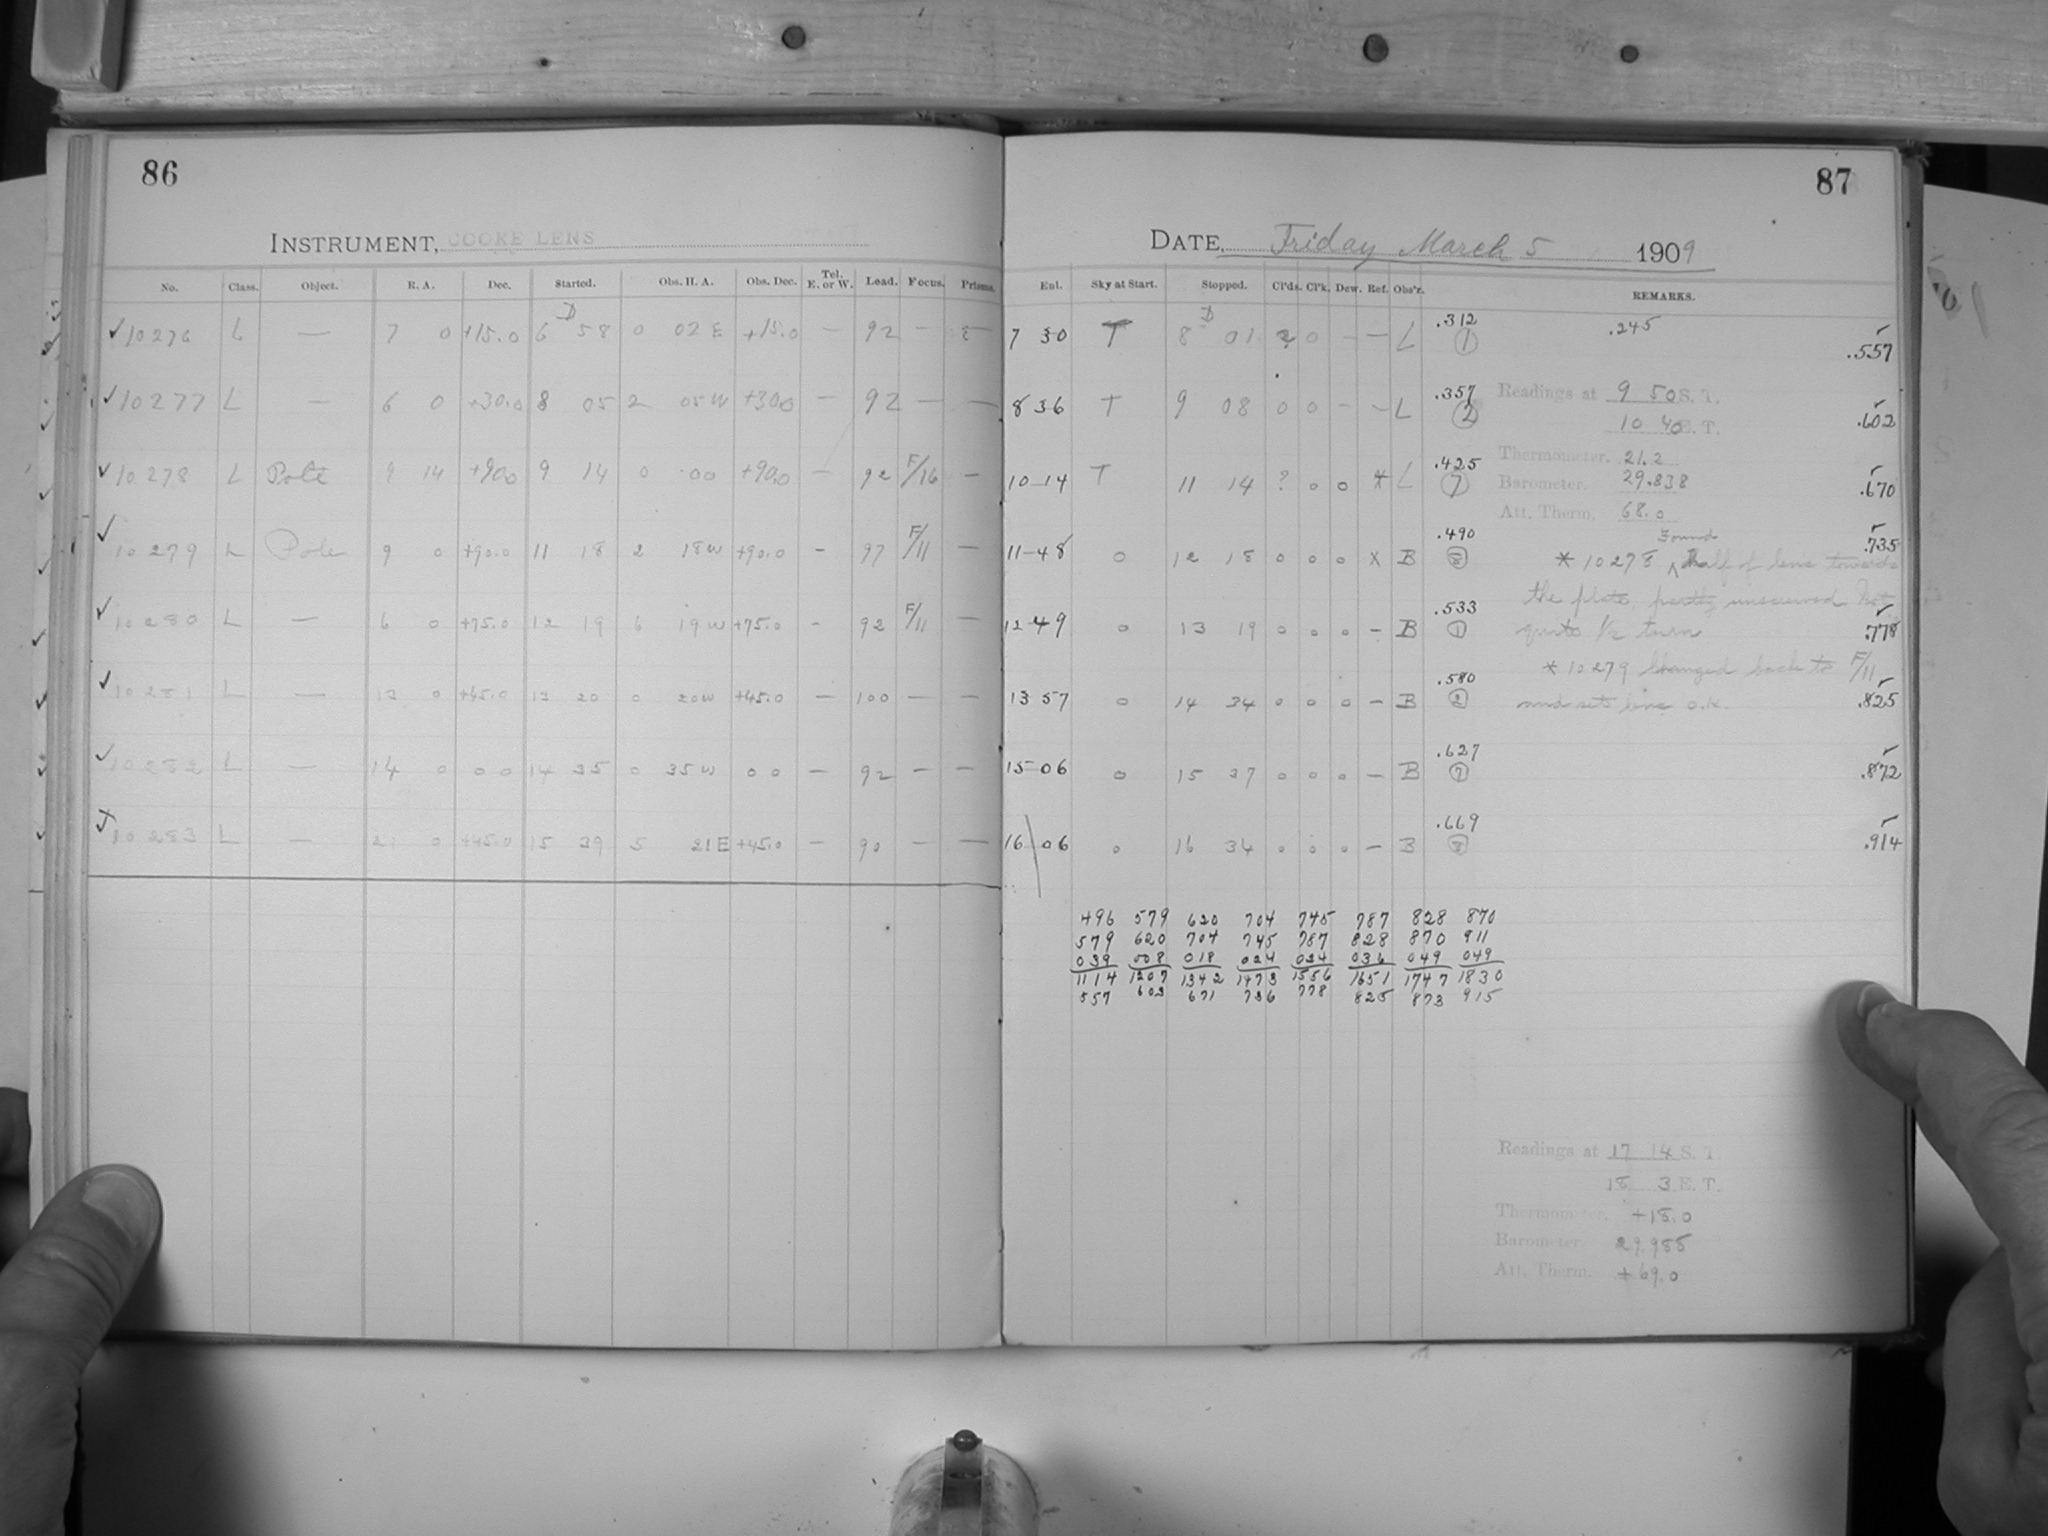 86
INSTRUMENT, COOKE LENS
No. Class. Object. R. A. Dec. Started. Obs. H. A. Obs. Dec. Tel. E. or W. Lead. Focus. Prisms.
D
✓10276 L — 7 0 +15.0 6 58 0 02 E +15.0 — 92 —
✓10277 L — 6 0 +30.0 8 05 2 05 W +30.0 — 92 — —
✓10278 L Pole 9 14 +90.0 9 14 0 00 +90.0 — 92 F/16 —
✓10279 L Pole 9 0 +90.0 11 18 2 18 W +90.0 - 97 F/11 —
✓10280 L — 6 0 +75.0 12 19 6 19 W +75.0 - 92 F/11 —
✓10281 L — 13 0 +45.0 13 20 0 20 W +45.0 — 100 — —
✓10282 L — 14 0 0 0 14 35 0 35 W 0 0 — 92 — —
10283 L — 21 0 +45.0 15 39 5 21 E +45.0 — 90 — —
87
DATE, Friday March 5 1909
Ent. Sky at Start. Stopped. Cl'ds. Cl'k. Dew. Ref. Obs'r. REMARKS.
D
7 30 T 8 01 2 0 - — L .312 ① .245 .557
8 36 T 9 08 0 0 - - L .357 ② .602
10-14 T 11 14 ? 0 0 * L .425 ⑦ .670
11-48 0 12 18 0 0 0 X B .490 .735
12 49 0 13 19 0 0 0 - B .533 ① .778
13 57 0 14 34 0 0 0 - B .580 ② .825
15 06 0 15 37 0 0 0 - B .627 .872
16 06 0 16 34 0 0 0 - B .669 .914
Readings at 9 50 S. T.
10 40 E. T.
Thermometer. 21.2
Barometer. 29.838
Att. Therm. 68.0
Found
* 10278 half of lens towards
the plate, partly unscrewed Not
quite ½ turn
* 10279 Changed back to F/11
and sets lens O.K.
496 579 620 704 745 787 828 870
579 620 704 745 787 828 870 911
039 008 018 024 024 036 049 049
1114 1207 1342 1473 1556 1651 1747 1830
557 603 671 736 778 825 873 915
Readings at 17 14 S. T.
18 3 E. T.
Thermometer. +18.0
Barometer. 29.985
Att. Therm. +69.0